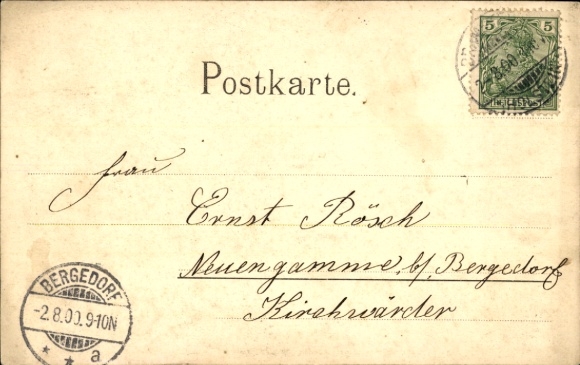 5
2.8.00.
REICHSPOST
Postkarte.
Frau
Ernst Rösch
Neuengamme b/ Bergedorf
Kirchwärder
BERGEDORF
-2.8.00.9-10N
* * a